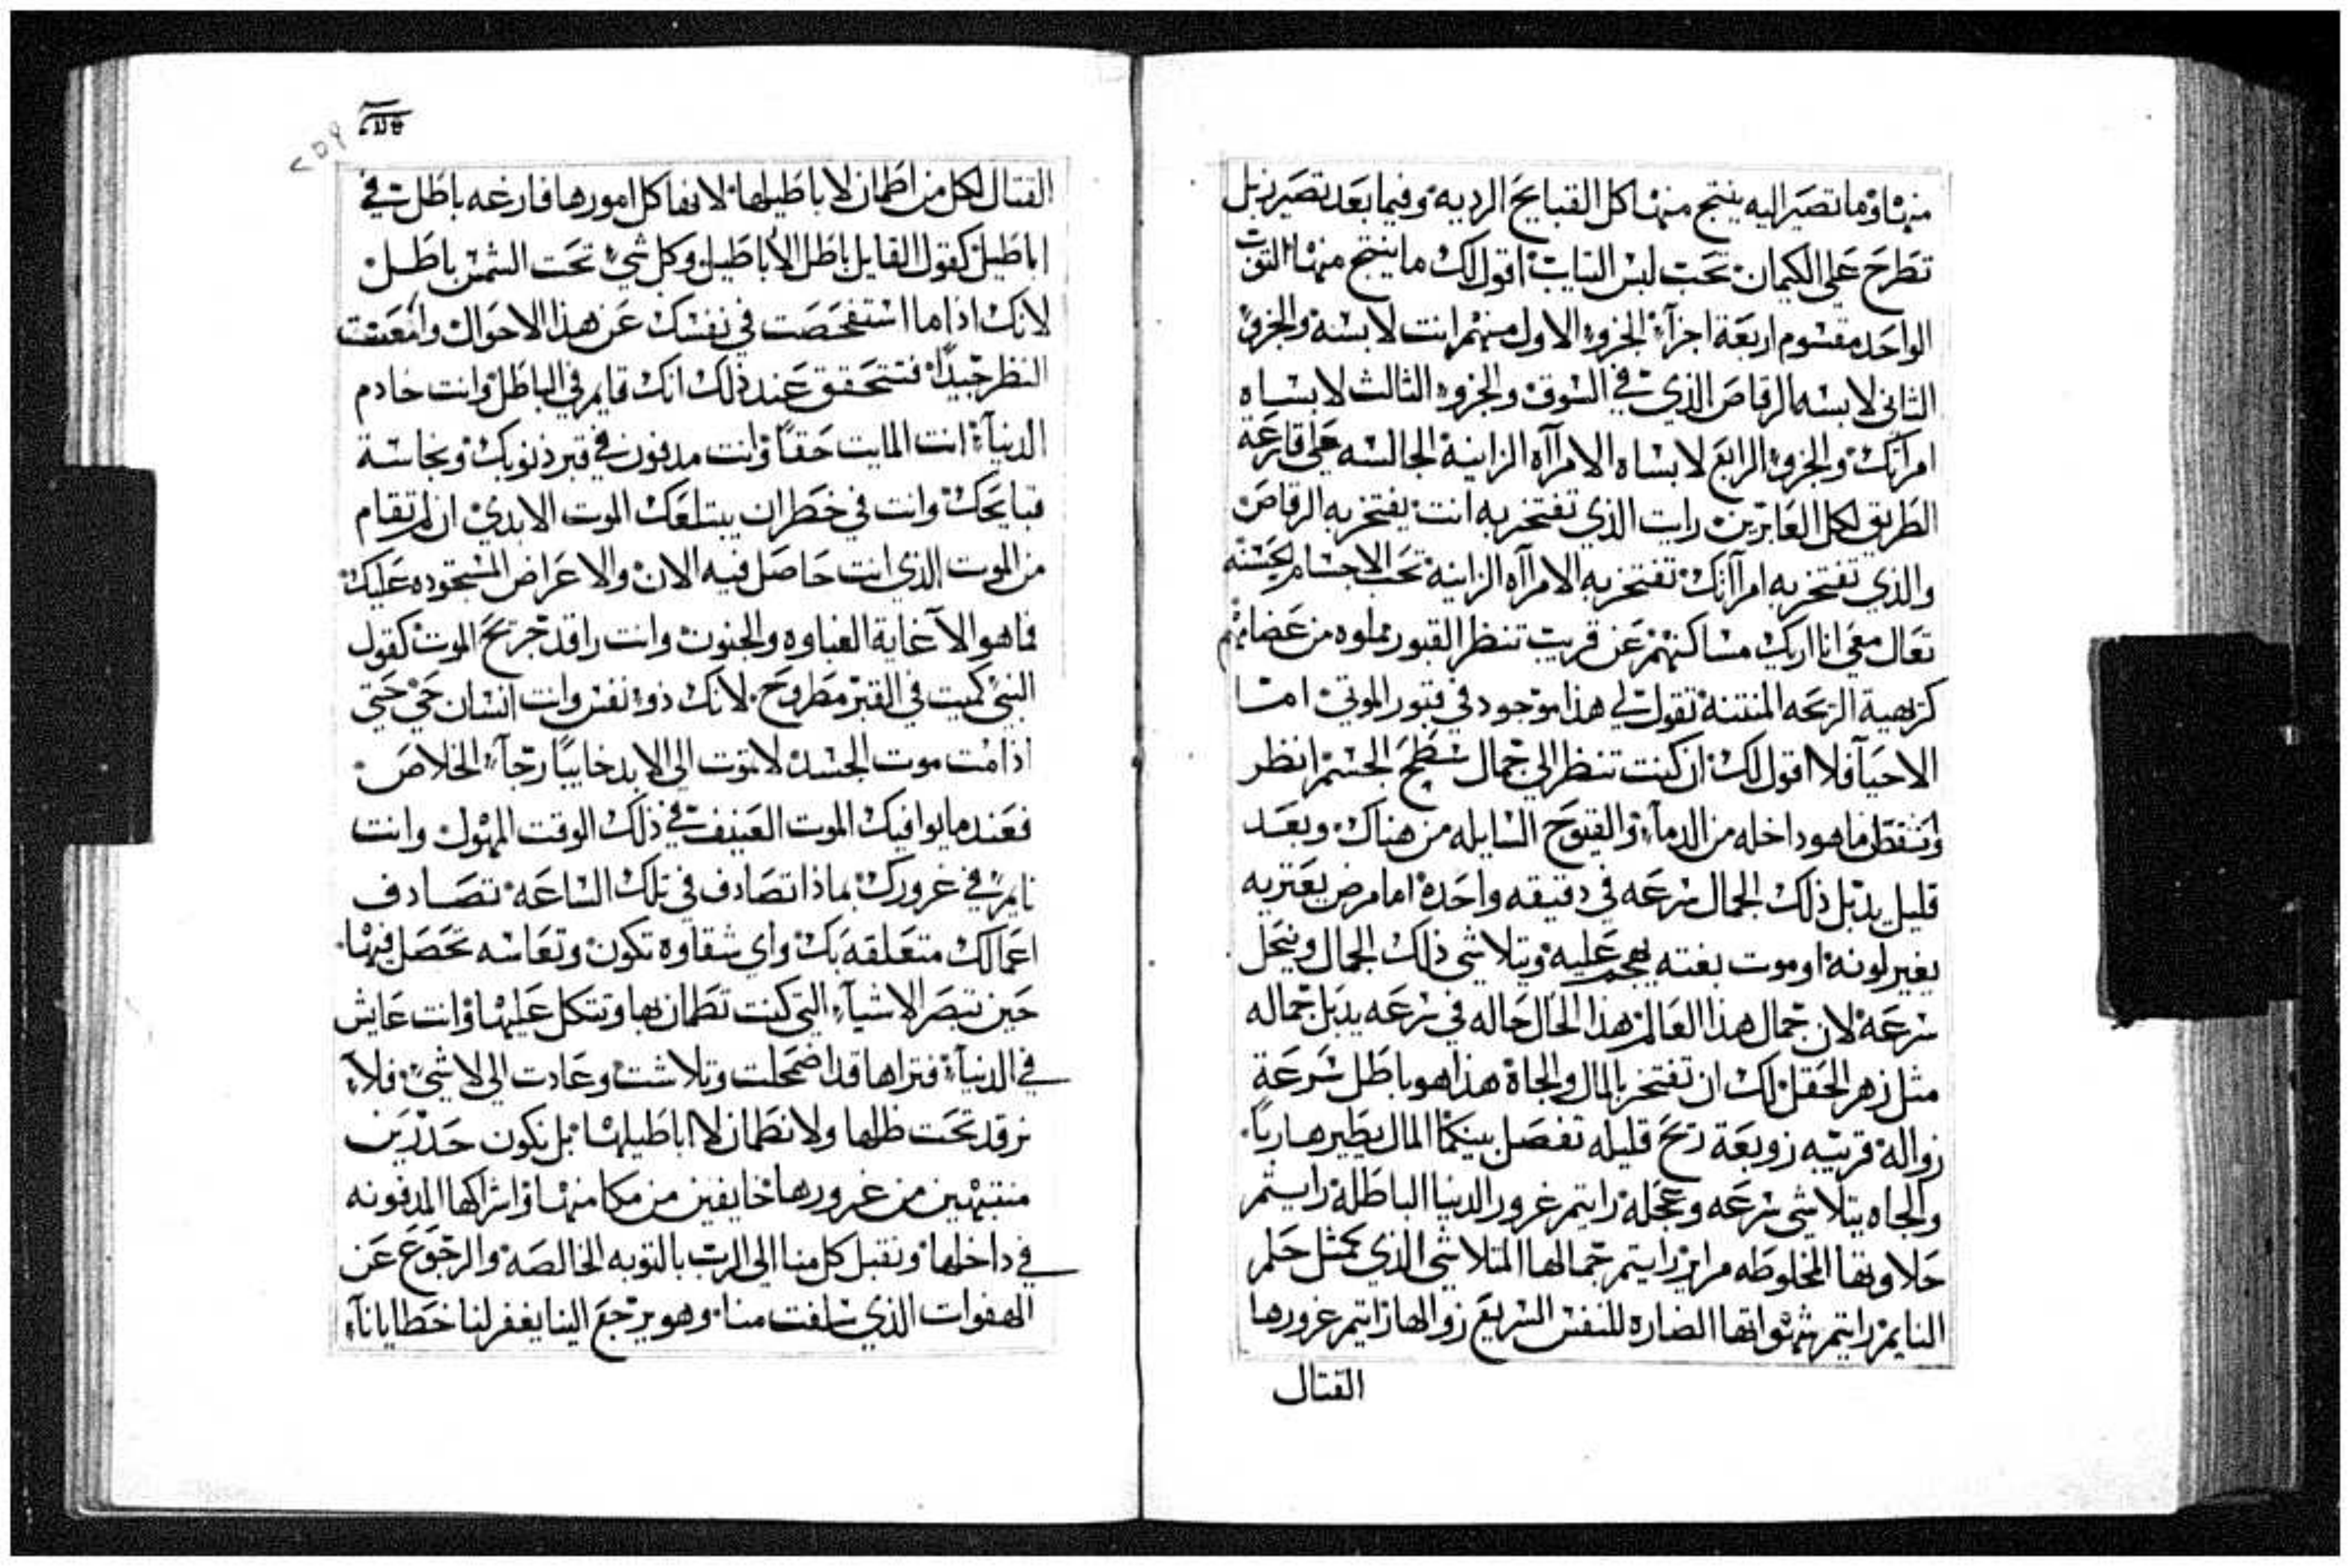 منها وما تصير اليه ينتج منها كل القبايح الرديه وفيما بعد تصير زبل
تطرح على الكيمان تحت لبس التياب اقول لك ما ينتج منها التوب
الواحد مقسوم اربعة اجزآء الجزو الاول منهم انت لابسه والجزو
الثاني لابسه الرقاص الذي في السوق والجزو الثالث لابساه
امرأتك والجزو الرابع لابساه الامرآاه الزانية الجالسه على قارعة
الطريق لكل العابرين رايت الذي تفتخر به انت يفتخر به الرقاص
والذي تفتخر به امرآتك تفتخر به الامرآاه الزانيه تحب الاجسام الحسنه
تعال معي انا اريك مساكنهم عن قريب تنظر القبور مملوه من عضامهم
كريهية الريحه المنتنة تقول لي هذا موجود في قبور الموتى امـا
الاحيآ فلا اقول لك ان كنت تنظر الي جمال سطح الجسم انظر
وتفطن ما هو داخله من الدمآء والقيوح السايله من هناك وبعـد
قليل يدبل ذلك الجمال سرعه في دقيقه واحده اما مرض يعتريه
يغير لونه او موت بغته يهجم عليه ويتلاشي ذلك الجمال وينحل
سرعه لان جمال هذا العالم هذا الحال حاله في سرعه يدبل جماله
مثل زهر الحقل لك ان تفتخر بالمال والجاة هذا هو باطل سرعة
زواله قريبه زوبعة ريح قليله تفصل بينكما المال يطير هـاربًا
والجاه يتلاشي سرعه وعجله رايتم غرور الدنيا الباطلة رايتم
حلاوتها المخلوطه مراير رايتم جمالها المتلاشي الذي كمثل حلم
النايم رايتم شهواتها الضاره للنفس السريع زوالها رايتم غرورها
القتال
القتال لكل من اطمان لاباطيلها لانها كل امورها فارغه باطل في
اباطيل كقول القايل باطل الأباطيل وكل شيء تحت الشمس باطـل
لانك اذا ما استفحصت في نفسك عن هذا الاحوال وامعنت
النظر جيدًا فتتحقق عند ذلك انك قايم في الباطل وانت خادم
الدنيآء انت المايت حقًا وانت مدفون في قبر ذنوبك ونجاسة
قبايحك وانت في خطر ان يبتلعك الموت الابدي ان لم تقام
من الموت الذي انت حاصل فيه الان والاعراض المستحوده عليك
فما هو الا غاية الغباوه والجنون وانت راقد جريح الموت كقول
النبي كميت في القبر مطروح لانك ذو نفس وانت انسان حي حتى
اذا مت موت الجسد لا تموت الي الابد خايبًا رجآء الخلاص
فعند ما يوافيك الموت العنيف في ذلك الوقت المهول وانت
نايم في غرورك بماذا تصادف في تلك الساعه تصـادف
اعمالك متعلقه بك واي شقاوه تكون وتعاسه تحصل فيها
حين تبصر الاشيآء التي كنت تطمان بها وتتكل عليها وانت عايش
في الدنيآء فتراها قد اضمحلت وتلاشت وعادت الي لا شيء فلا
نرقد تحت ظلها ولا نطمان لا اباطيلها بل نكون حـذرين
منتبهين من غرورها خايفين من مكامنها واشراكها المدفونه
في داخلها ونقبل كل منا الي الرب بالتوبه الخالصه والرجوع عن
الهفوات الذي سلفت منا وهو يرجع الينا يغفر لنا خطايانآء